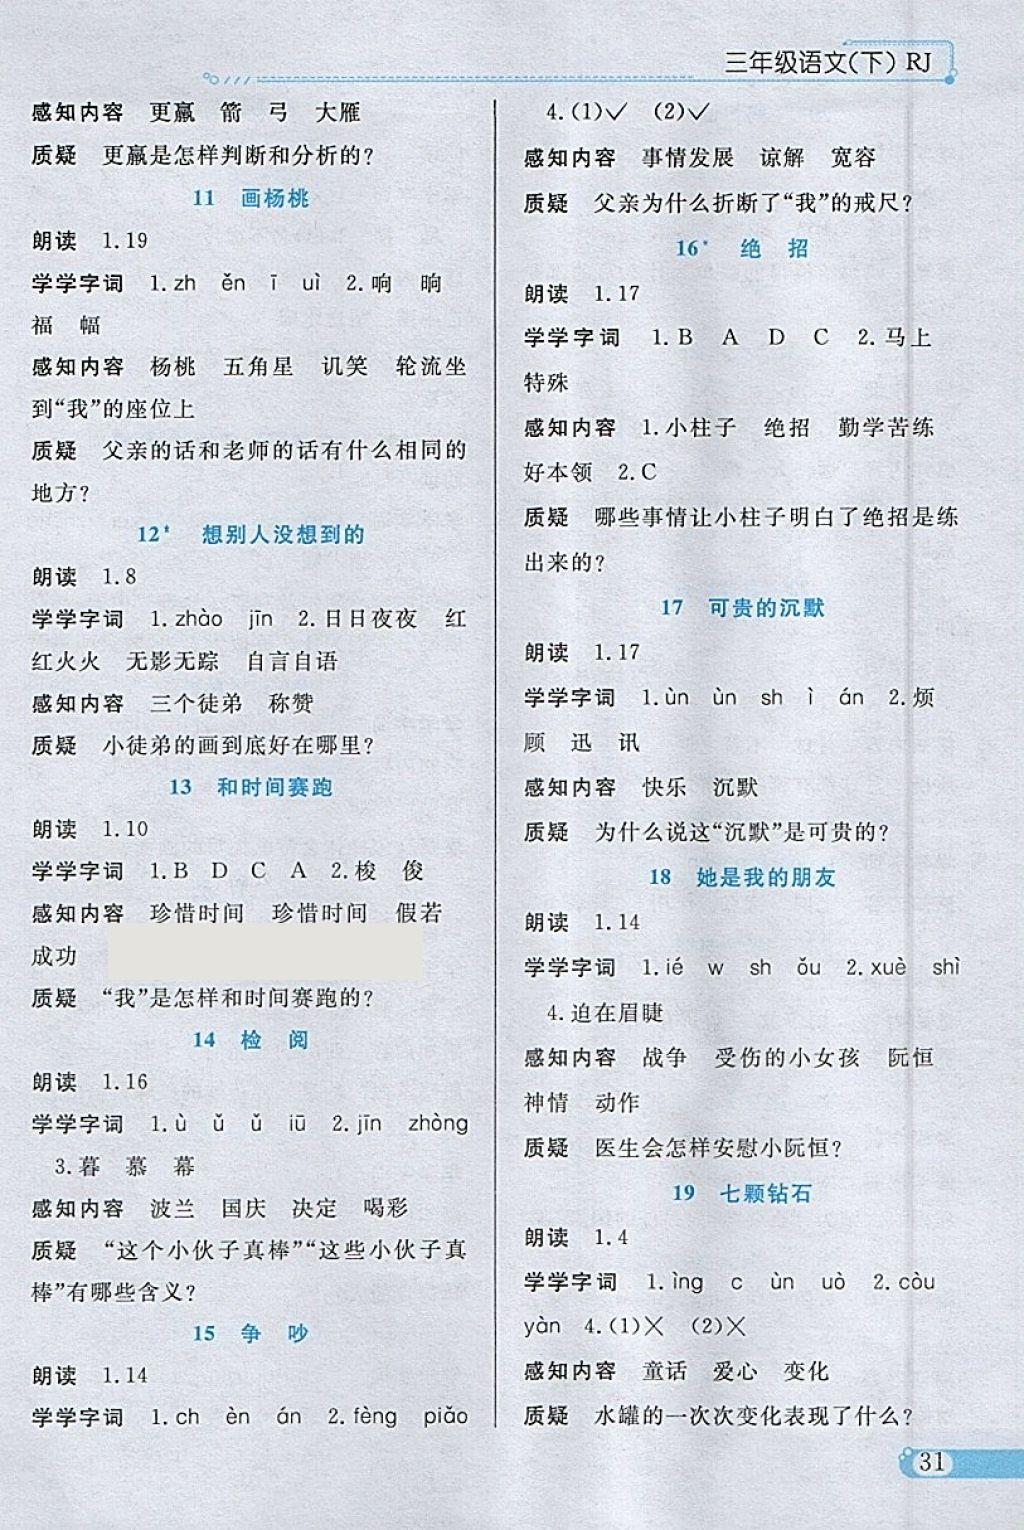 三年级语文(下) RJ
感知内容 更羸 箭 弓 大雁
质疑 更羸是怎样判断和分析的?
11 画杨桃
朗读 1.19
学学字词 1.zh ěn ī uì 2.响 晌
福 幅
感知内容 杨桃 五角星 讥笑 轮流坐
到“我”的座位上
质疑 父亲的话和老师的话有什么相同的
地方?
12* 想别人没想到的
朗读 1.8
学学字词 1.zhào jīn 2.日日夜夜 红
红火火 无影无踪 自言自语
感知内容 三个徒弟 称赞
质疑 小徒弟的画到底好在哪里?
13 和时间赛跑
朗读 1.10
学学字词 1.B D C A 2.梭 俊
感知内容 珍惜时间 珍惜时间 假若
成功
质疑 “我”是怎样和时间赛跑的?
14 检 阅
朗读 1.16
学学字词 1.ù ǔ ǔ iū 2.jīn zhòng
3.暮 慕 幕
感知内容 波兰 国庆 决定 喝彩
质疑 “这个小伙子真棒”“这些小伙子真
棒”有哪些含义?
15 争 吵
朗读 1.14
学学字词 1.ch èn án 2.fèng piǎo
4.(1)✓ (2)✓
感知内容 事情发展 谅解 宽容
质疑 父亲为什么折断了“我”的戒尺?
16* 绝 招
朗读 1.17
学学字词 1.B A D C 2.马上
特殊
感知内容 1.小柱子 绝招 勤学苦练
好本领 2.C
质疑 哪些事情让小柱子明白了绝招是练
出来的?
17 可贵的沉默
朗读 1.17
学学字词 1.ùn ùn sh ì án 2.烦
顾 迅 讯
感知内容 快乐 沉默
质疑 为什么说这“沉默”是可贵的?
18 她是我的朋友
朗读 1.14
学学字词 1.ié w sh ǒu 2.xuè shì
4.迫在眉睫
感知内容 战争 受伤的小女孩 阮恒
神情 动作
质疑 医生会怎样安慰小阮恒?
19 七颗钻石
朗读 1.4
学学字词 1.ìng c ùn uò 2.còu
yàn 4.(1)✕ (2)✕
感知内容 童话 爱心 变化
质疑 水罐的一次次变化表现了什么?
31